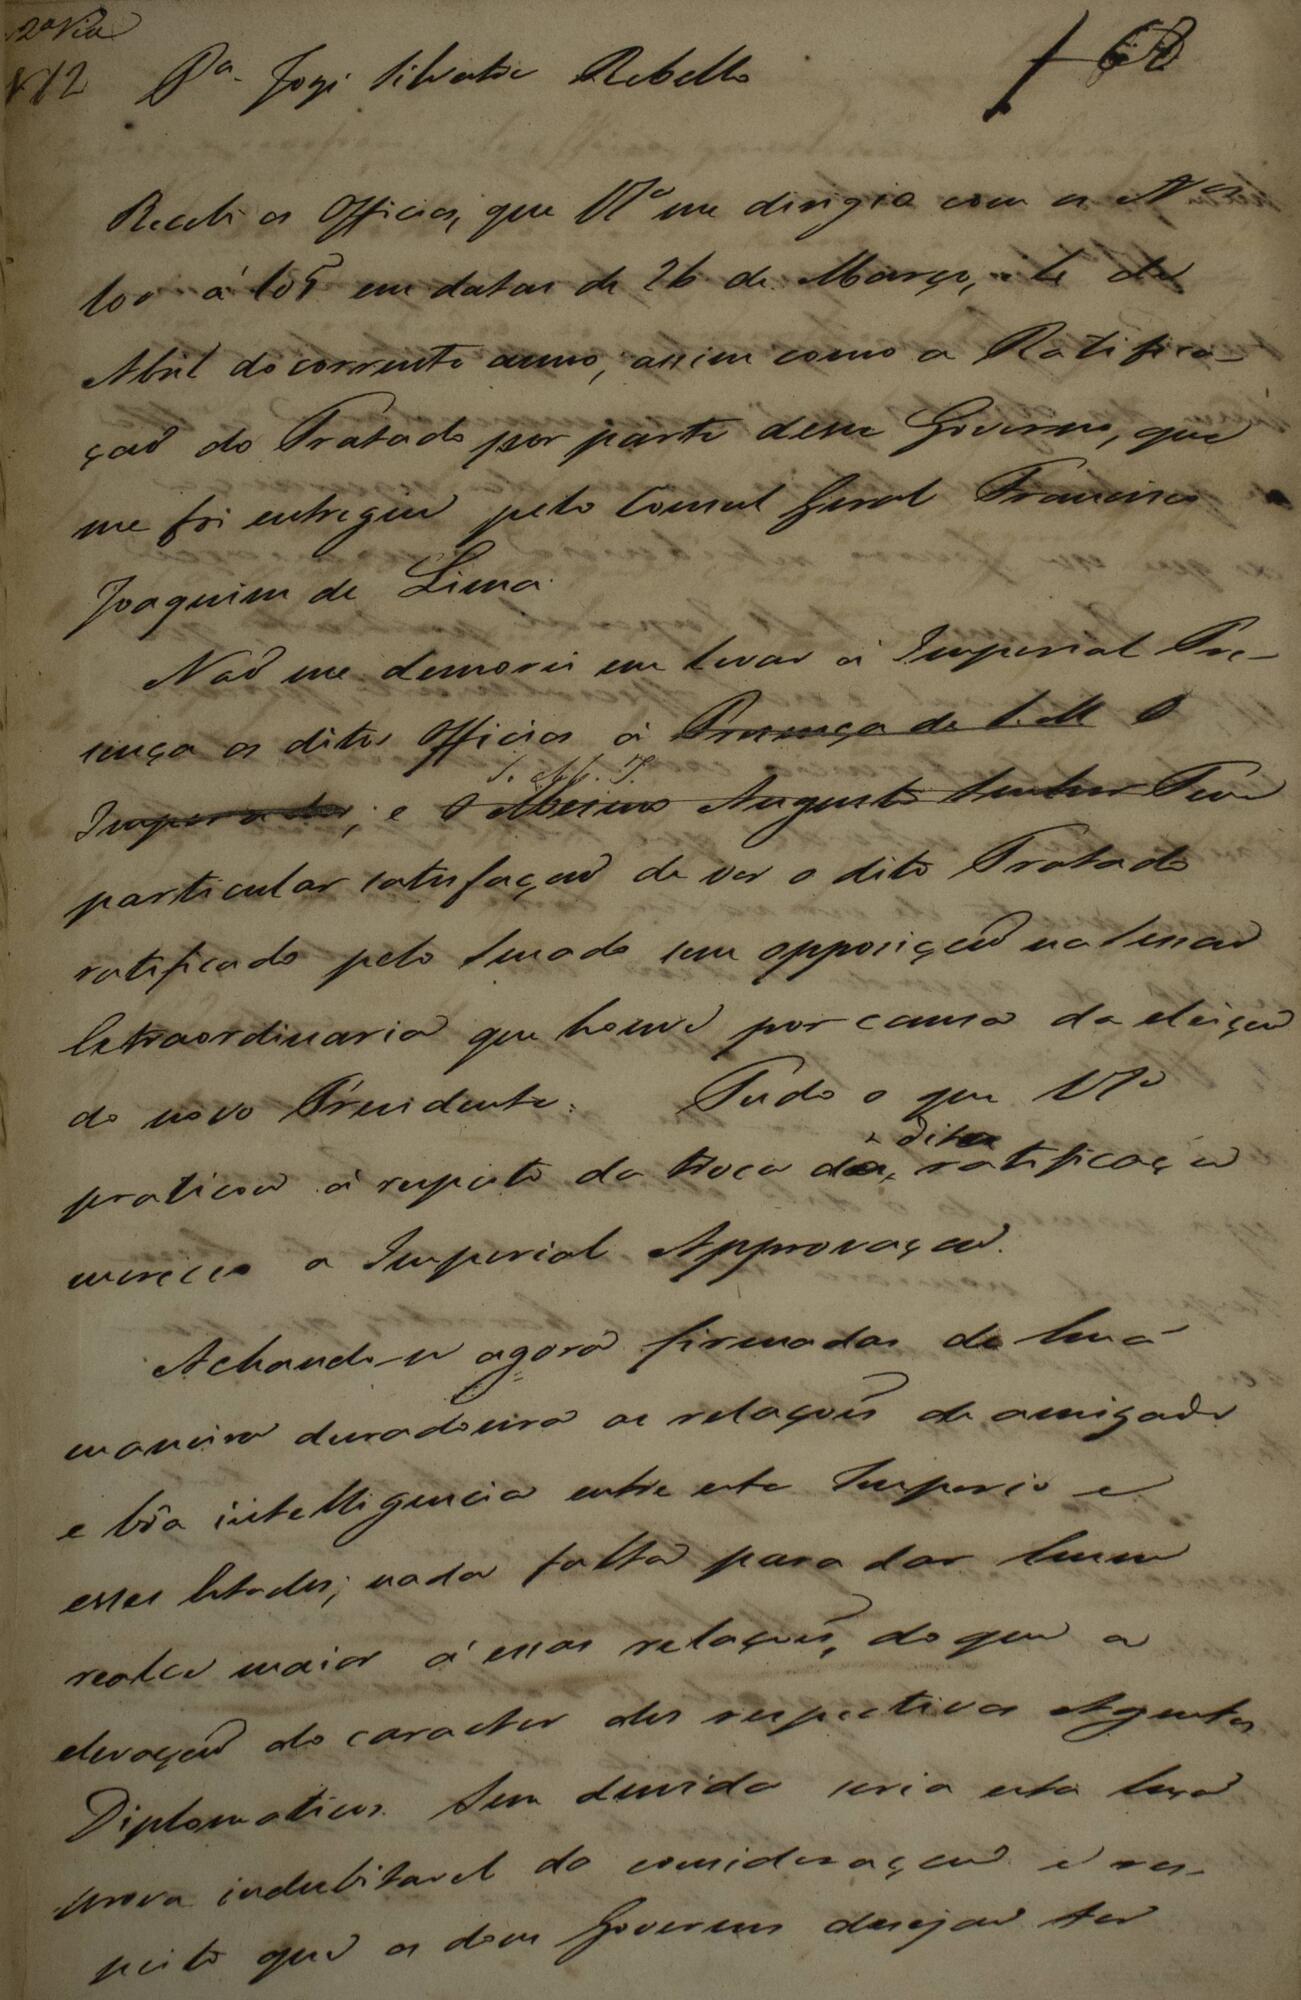 2ª Via
Nº 12 Pª Joze Silvestre Rebello
Recebi os Officios, que VMcê me dirigio com os Nos
100 á 105 em datas de 26 de Março, e 4 de
Abril do corrente anno, assim como a Ratifica-
çaõ do Tratado por parte desse Governo, que
me foi entregue pelo Consul Geral Francisco
Joaquim de Lima.
Naõ me demorei em levar á Imperial Pre-
sença os ditos Officios á Presença de S. M. O
S. M. I.
Imperador; e O Mesmo Augusto Senhor Teve
particular satisfaçaõ de ver o dito Tratado
ratificado pelo Senado sem opposiçaõ na Sessaõ
Extraordinaria que houve por causa da eleiçaõ
do novo Presidente. Tudo o que VMcê
dita
praticou á respeito da troca da ratificaçaõ
mereceo a Imperial Approvaçaõ.
Achando-se agora firmadas de huã
maneira duradoura as relações de amizade
e bôa intelligencia entre este Imperio e
esses Estados, nada falta para dar hum
realce maior á essas relações, do que a
elevaçaõ do caracter dos respectivos Agentes
Diplomaticos. Sem duvida seria esta huã
prova indubitavel da consideraçaõ e res-
peito que os dous Governos desejaõ ter